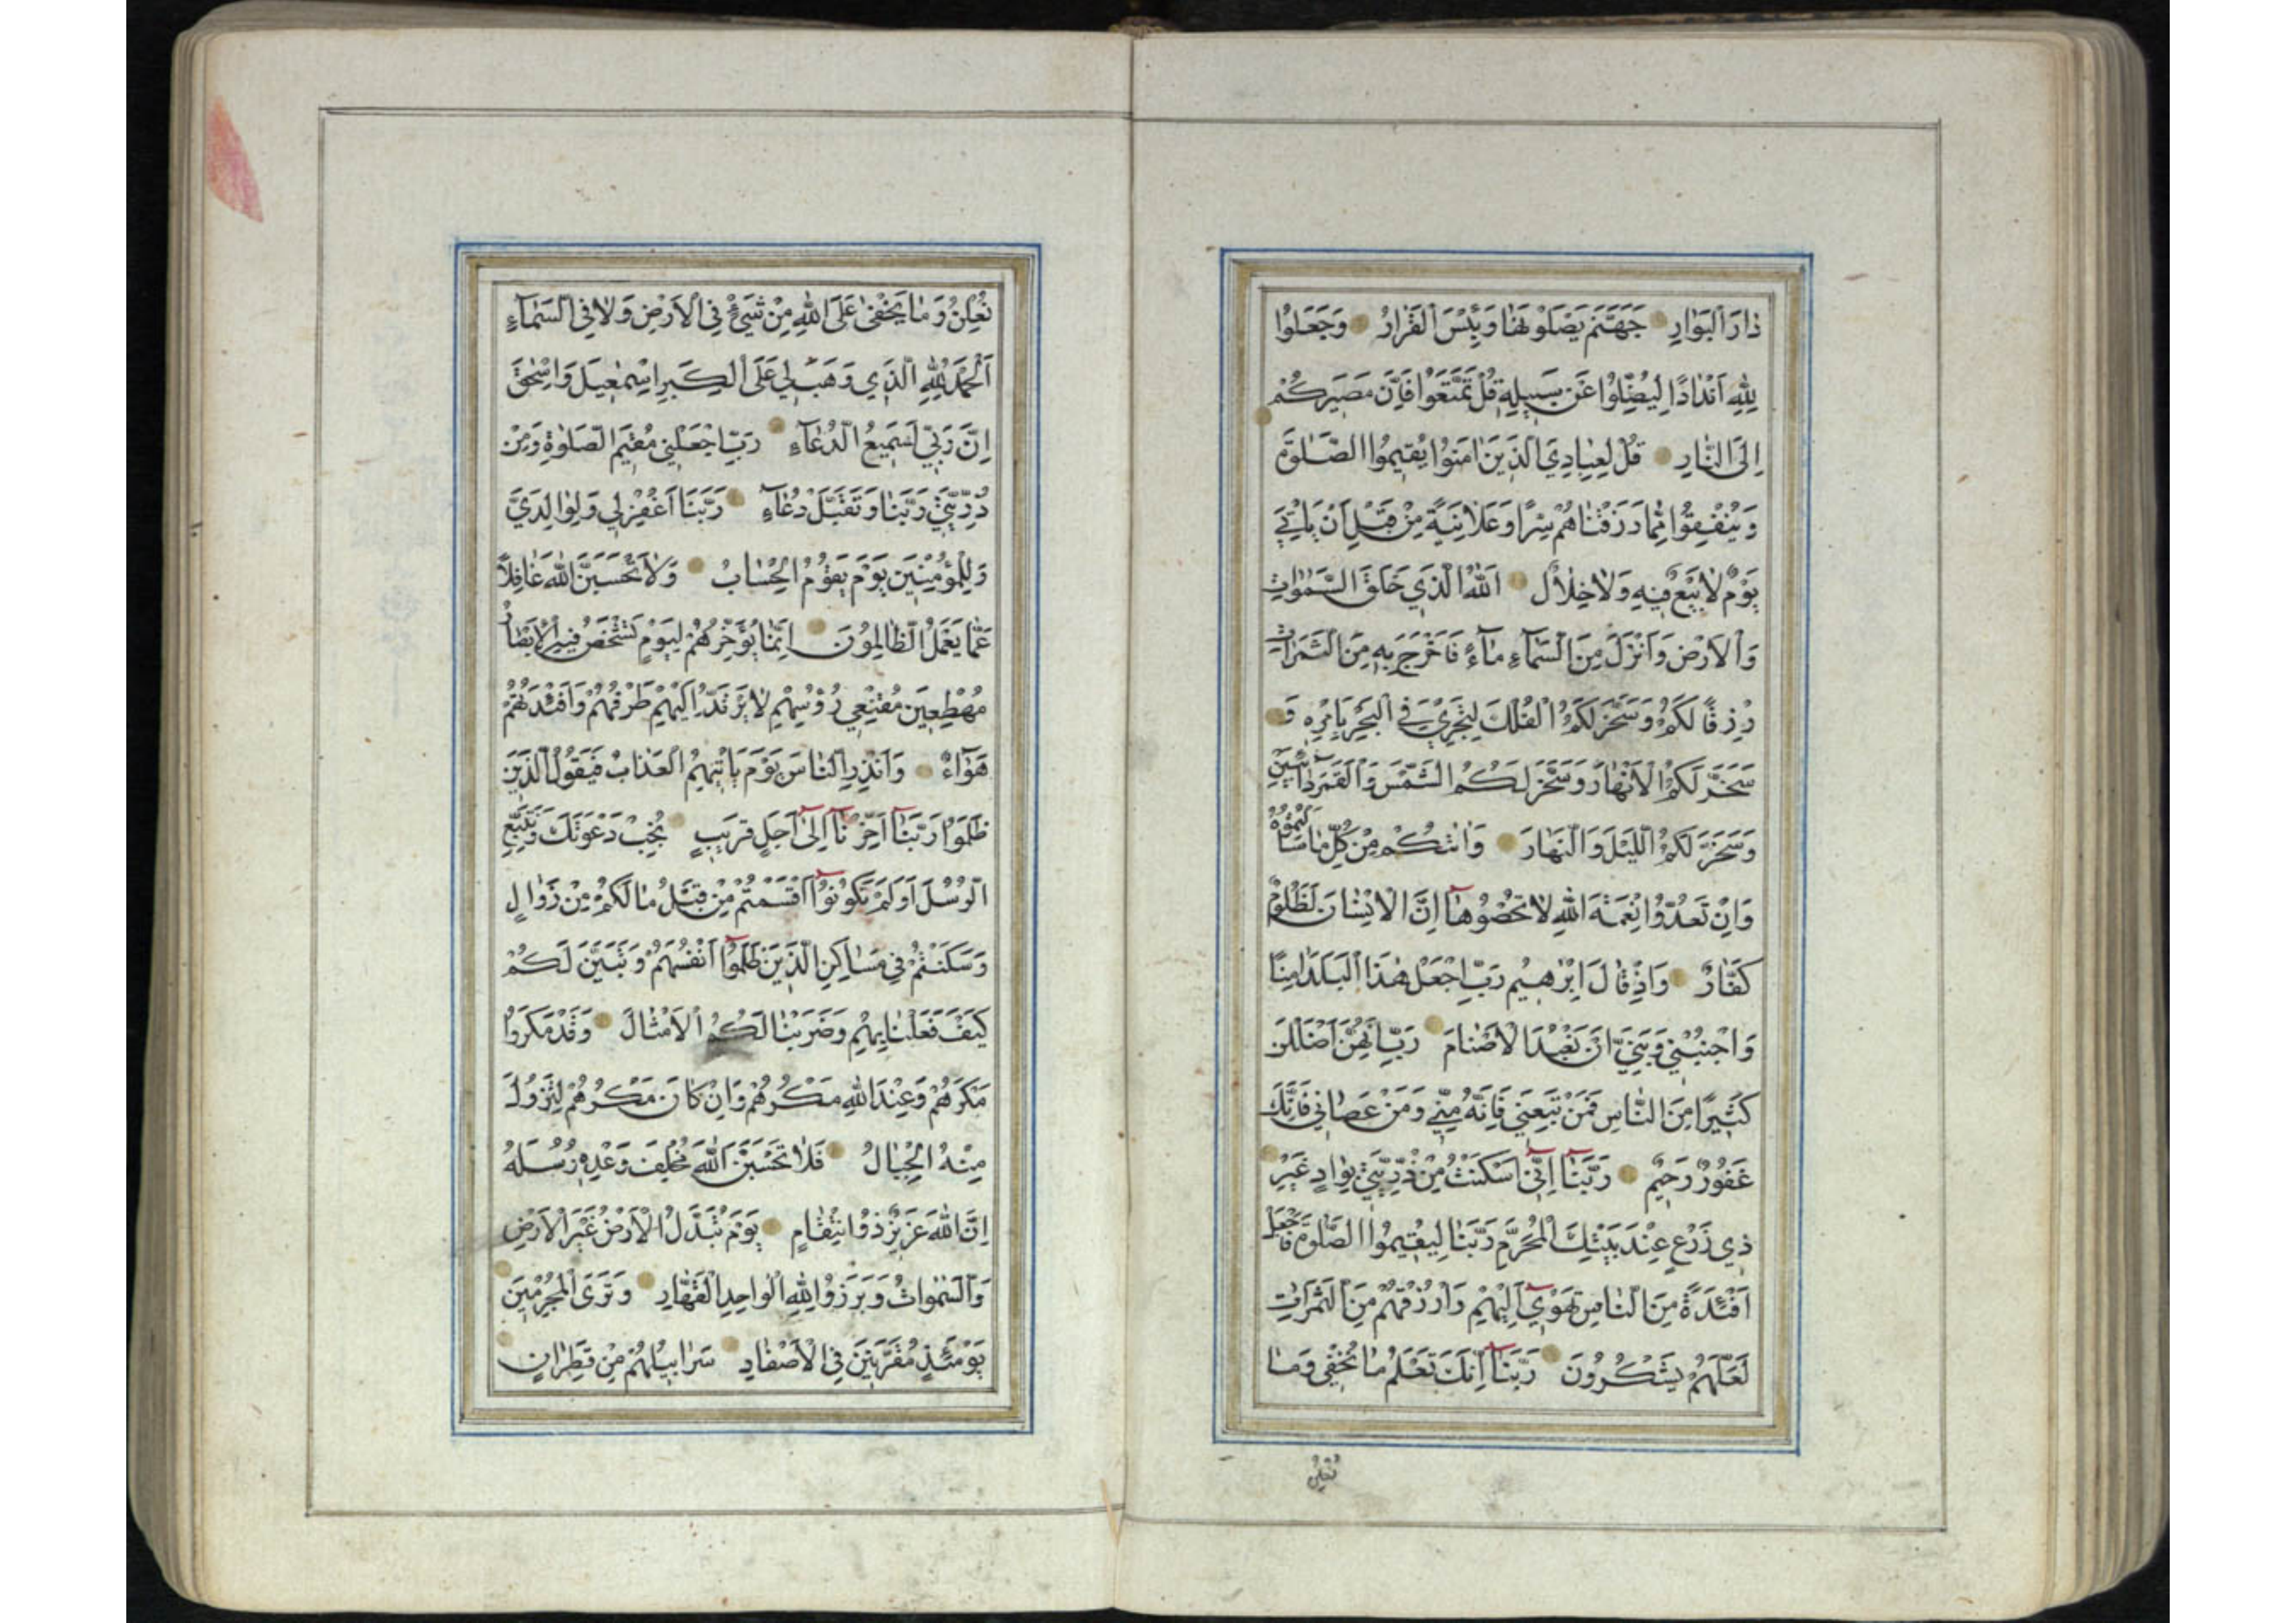 دَارَ الْبَوَارِ جَهَنَّمَ يَصْلَوْنَهَا وَبِئْسَ الْقَرَارُ وَجَعَلُوا
لِلّٰهِ اَنْدَادًا لِيُضِلُّوا عَنْ سَبِيلِهِ قُلْ تَمَتَّعُوا فَاِنَّ مَصِيرَكُمْ
اِلَى النَّارِ قُلْ لِعِبَادِيَ الَّذِينَ اٰمَنُوا يُقِيمُوا الصَّلٰوةَ
وَيُنْفِقُوا مِمَّا رَزَقْنَاهُمْ سِرًّا وَعَلَانِيَةً مِنْ قَبْلِ اَنْ يَاْتِيَ
يَوْمٌ لَا بَيْعٌ فِيهِ وَلَا خِلَالٌ اَللّٰهُ الَّذِي خَلَقَ السَّمٰوَاتِ
وَالْاَرْضَ وَاَنْزَلَ مِنَ السَّمَاءِ مَاءً فَاَخْرَجَ بِهِ مِنَ الثَّمَرَاتِ
رِزْقًا لَكُمْ وَسَخَّرَ لَكُمُ الْفُلْكَ لِتَجْرِيَ فِي الْبَحْرِ بِاَمْرِهِ وَ
سَخَّرَ لَكُمُ الْاَنْهَارَ وَسَخَّرَ لَكُمُ الشَّمْسَ وَالْقَمَرَ دَائِبَيْنِ
وَسَخَّرَ لَكُمُ اللَّيْلَ وَالنَّهَارَ وَاٰتٰكُمْ مِنْ كُلِّ مَا سَاَلْتُمُوهُ
وَاِنْ تَعُدُّوا نِعْمَةَ اللّٰهِ لَا تُحْصُوهَا اِنَّ الْاِنْسَانَ لَظَلُومٌ
كَفَّارٌ وَاِذْ قَالَ اِبْرٰهِيمُ رَبِّ اجْعَلْ هٰذَا الْبَلَدَ اٰمِنًا
وَاجْنُبْنِي وَبَنِيَّ اَنْ نَعْبُدَ الْاَصْنَامَ رَبِّ اِنَّهُنَّ اَضْلَلْنَ
كَثِيرًا مِنَ النَّاسِ فَمَنْ تَبِعَنِي فَاِنَّهُ مِنِّي وَمَنْ عَصَانِي فَاِنَّكَ
غَفُورٌ رَحِيمٌ رَبَّنَا اِنِّي اَسْكَنْتُ مِنْ ذُرِّيَّتِي بِوَادٍ غَيْرِ
ذِي زَرْعٍ عِنْدَ بَيْتِكَ الْمُحَرَّمِ رَبَّنَا لِيُقِيمُوا الصَّلٰوةَ فَاجْعَلْ
اَفْئِدَةً مِنَ النَّاسِ تَهْوِي اِلَيْهِمْ وَارْزُقْهُمْ مِنَ الثَّمَرَاتِ
لَعَلَّهُمْ يَشْكُرُونَ رَبَّنَا اِنَّكَ تَعْلَمُ مَا نُخْفِي وَمَا
نُعْلِنُ
نُعْلِنُ وَمَا يَخْفٰى عَلَى اللّٰهِ مِنْ شَيْءٍ فِي الْاَرْضِ وَلَا فِي السَّمَاءِ
اَلْحَمْدُ لِلّٰهِ الَّذِي وَهَبَ لِي عَلَى الْكِبَرِ اِسْمٰعِيلَ وَاِسْحٰقَ
اِنَّ رَبِّي لَسَمِيعُ الدُّعَاءِ رَبِّ اجْعَلْنِي مُقِيمَ الصَّلٰوةِ وَمِنْ
ذُرِّيَّتِي رَبَّنَا وَتَقَبَّلْ دُعَاءِ رَبَّنَا اغْفِرْ لِي وَلِوَالِدَيَّ
وَلِلْمُؤْمِنِينَ يَوْمَ يَقُومُ الْحِسَابُ وَلَا تَحْسَبَنَّ اللّٰهَ غَافِلًا
عَمَّا يَعْمَلُ الظَّالِمُونَ اِنَّمَا يُؤَخِّرُهُمْ لِيَوْمٍ تَشْخَصُ فِيهِ الْاَبْصَارُ
مُهْطِعِينَ مُقْنِعِي رُؤُسِهِمْ لَا يَرْتَدُّ اِلَيْهِمْ طَرْفُهُمْ وَاَفْئِدَتُهُمْ
هَوَاءٌ وَاَنْذِرِ النَّاسَ يَوْمَ يَاْتِيهِمُ الْعَذَابُ فَيَقُولُ الَّذِينَ
ظَلَمُوا رَبَّنَا اَخِّرْنَا اِلٰى اَجَلٍ قَرِيبٍ نُجِبْ دَعْوَتَكَ وَنَتَّبِعِ
الرُّسُلَ اَوَلَمْ تَكُونُوا اَقْسَمْتُمْ مِنْ قَبْلُ مَا لَكُمْ مِنْ زَوَالٍ
وَسَكَنْتُمْ فِي مَسَاكِنِ الَّذِينَ ظَلَمُوا اَنْفُسَهُمْ وَتَبَيَّنَ لَكُمْ
كَيْفَ فَعَلْنَا بِهِمْ وَضَرَبْنَا لَكُمُ الْاَمْثَالَ وَقَدْ مَكَرُوا
مَكْرَهُمْ وَعِنْدَ اللّٰهِ مَكْرُهُمْ وَاِنْ كَانَ مَكْرُهُمْ لِتَزُولَ
مِنْهُ الْجِبَالُ فَلَا تَحْسَبَنَّ اللّٰهَ مُخْلِفَ وَعْدِهِ رُسُلَهُ
اِنَّ اللّٰهَ عَزِيزٌ ذُو انْتِقَامٍ يَوْمَ تُبَدَّلُ الْاَرْضُ غَيْرَ الْاَرْضِ
وَالسَّمٰوَاتُ وَبَرَزُوا لِلّٰهِ الْوَاحِدِ الْقَهَّارِ وَتَرَى الْمُجْرِمِينَ
يَوْمَئِذٍ مُقَرَّنِينَ فِي الْاَصْفَادِ سَرَابِيلُهُمْ مِنْ قَطِرَانٍ